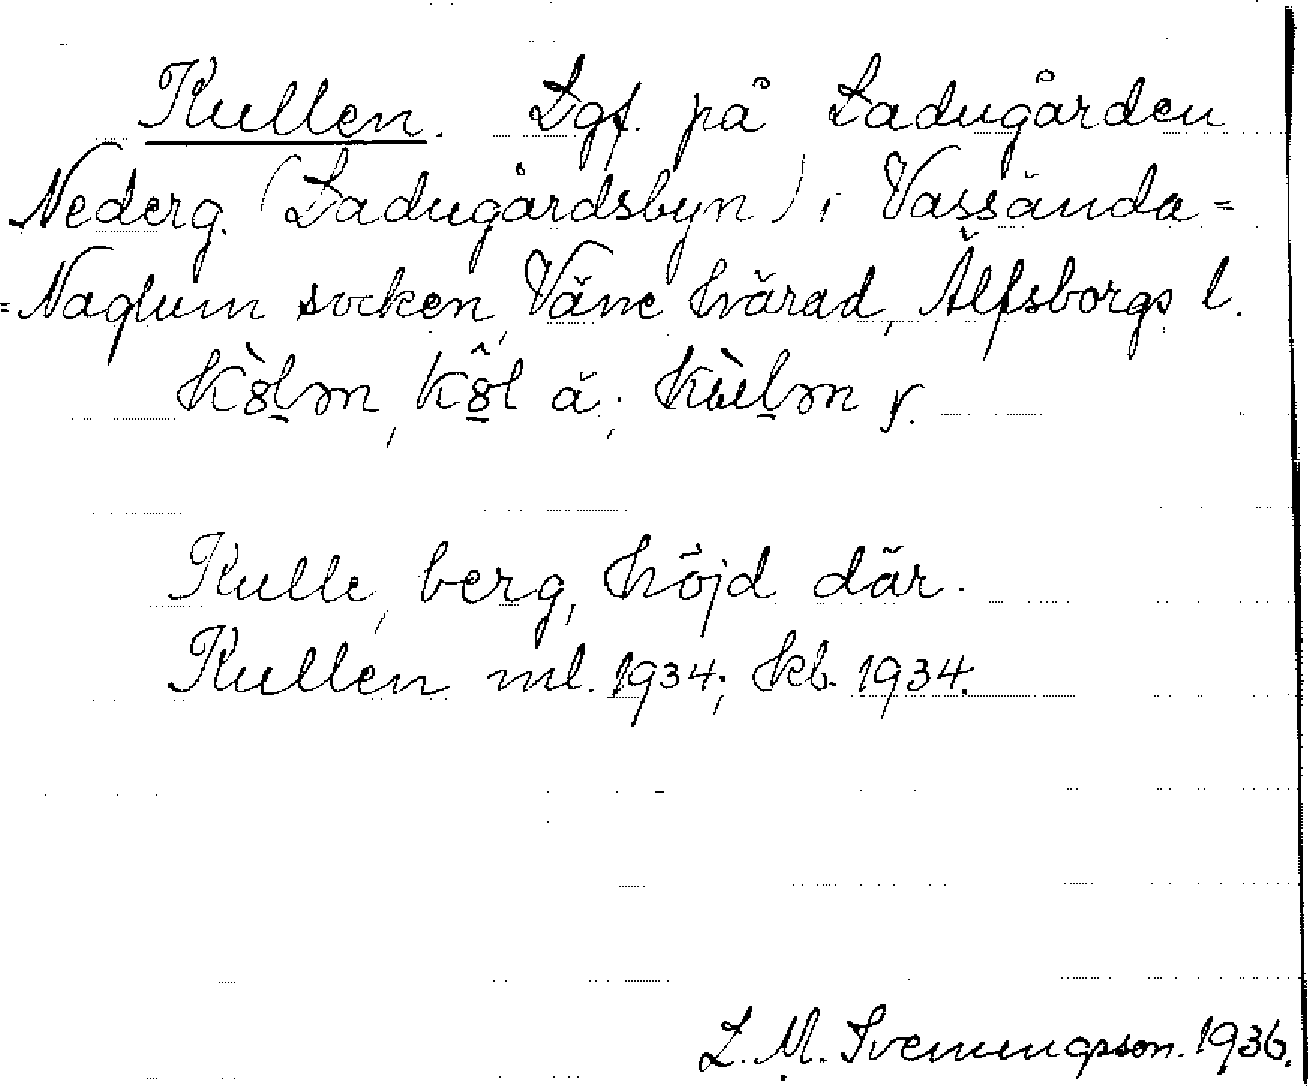 Kullen. Lgf. på Ladugården
Nederg. (Ladugårdsbyn) i Vassända-
-Naglum socken, Väne härad, Älfsborgs l.
kullen, ä.; r.
Kulle, berg, höjd där.
Kullen ml. 1934; kb. 1934.
L. M. Svenungsson. 1936.